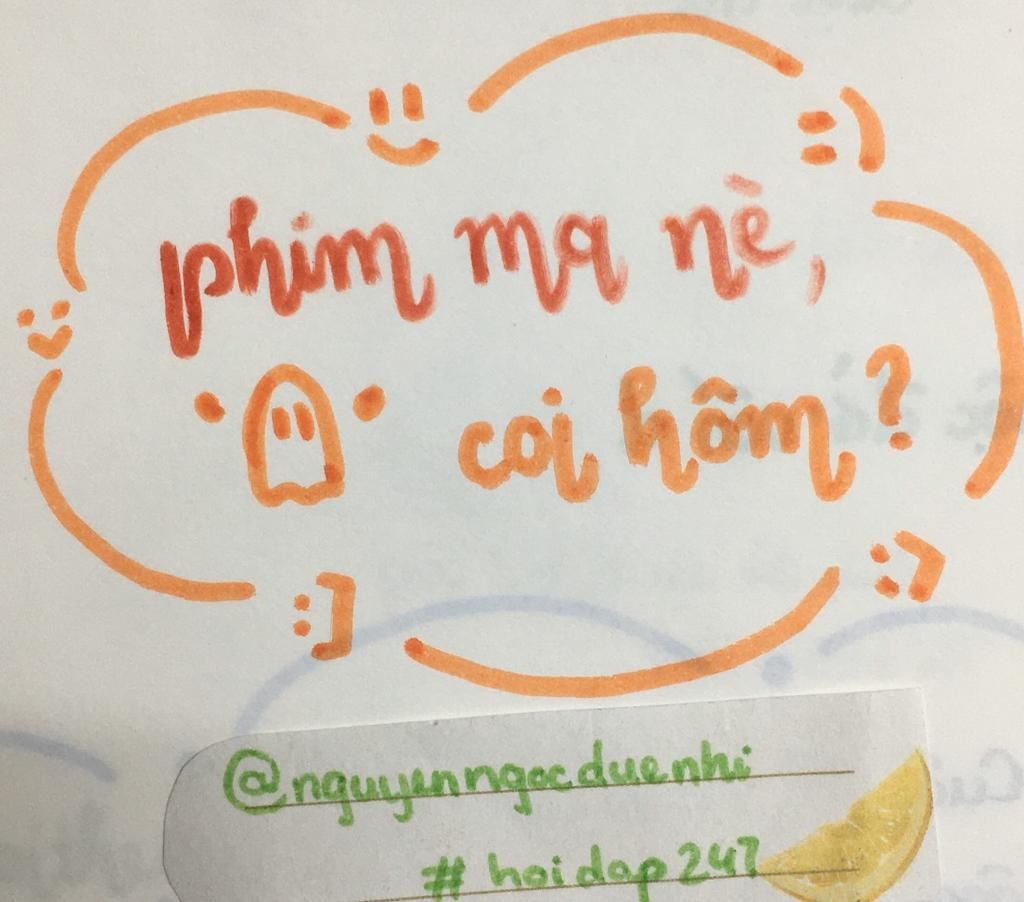 phim ma nè,
coi hôm?
@nguyenngocduenhi
#hoidap247